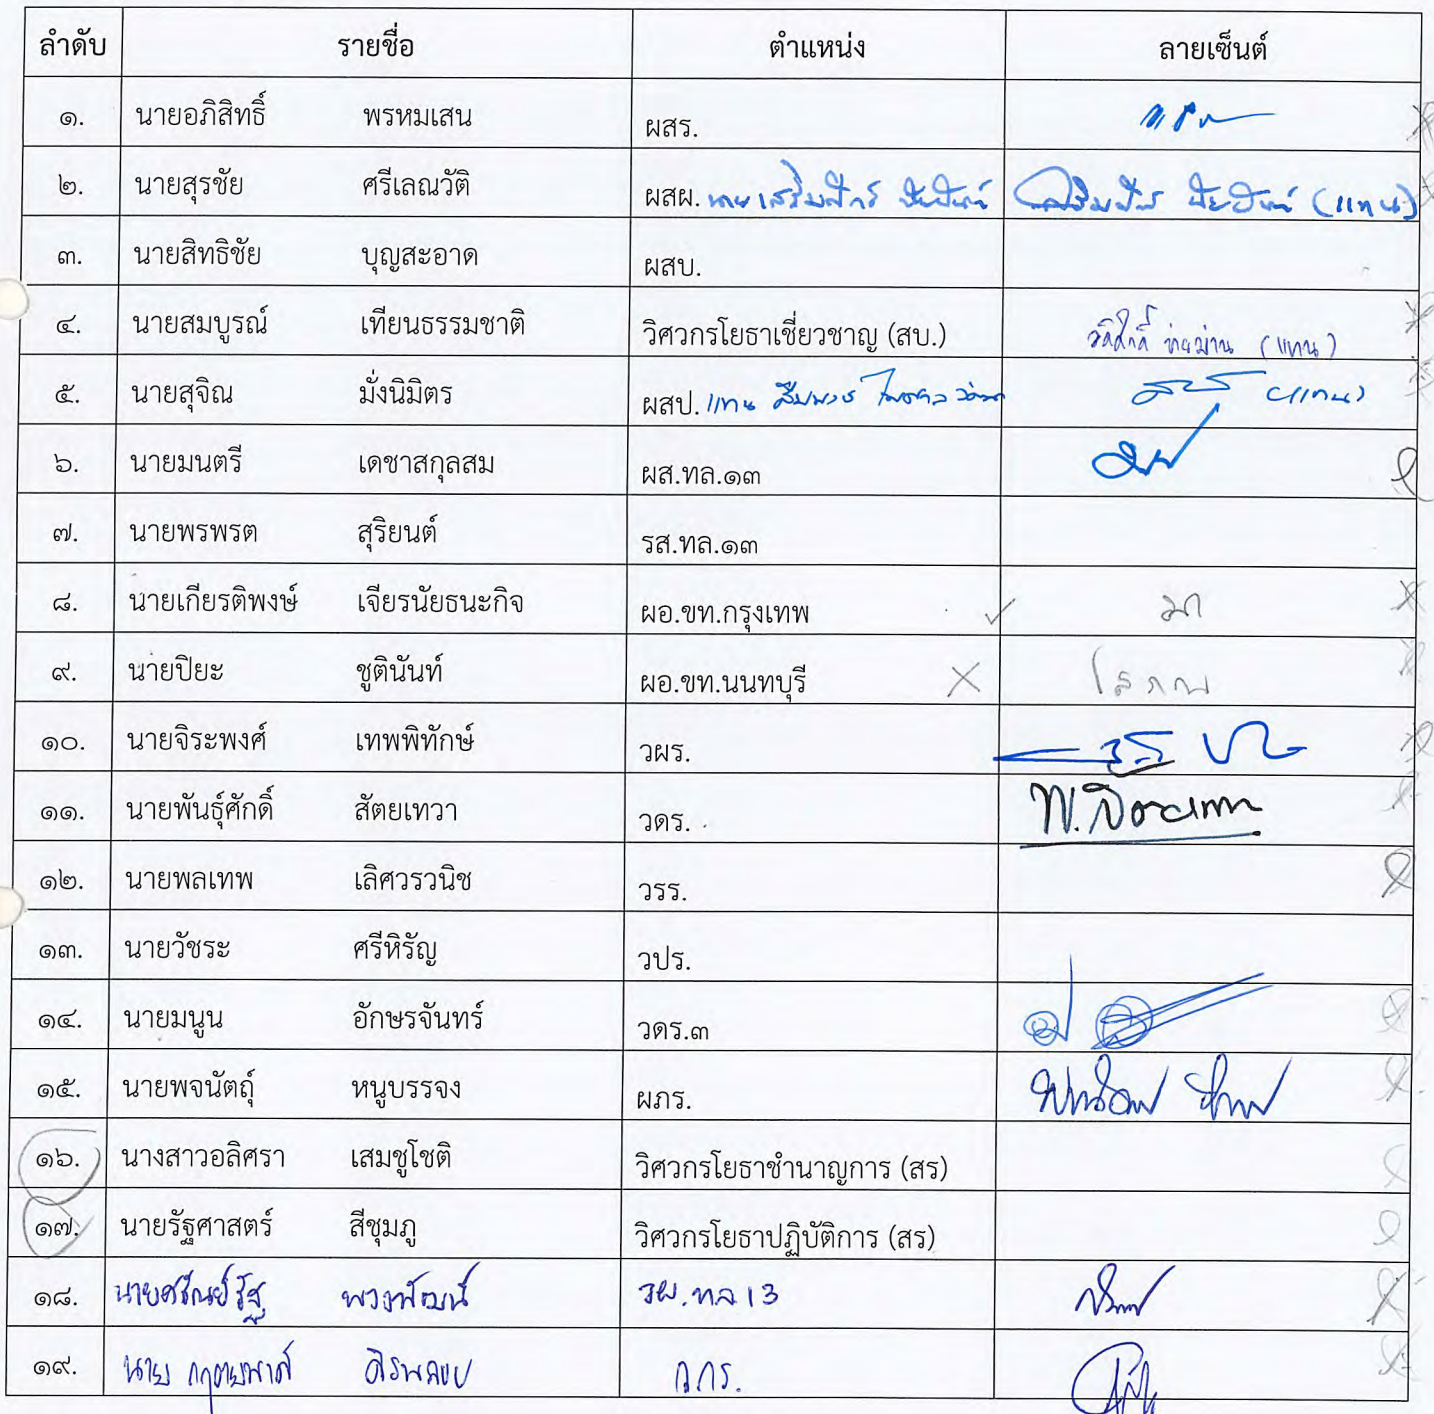 ลำดับ รายชื่อ ตำแหน่ง ลายเซ็นต์
๑. นายอภิสิทธิ์ พรหมเสน ผสร.
๒. นายสุรชัย ศรีเลณวัติ ผสผ. นายเสริมศักดิ์ (แทน)
๓. นายสิทธิชัย บุญสะอาด ผสบ.
๔. นายสมบูรณ์ เทียนธรรมชาติ วิศวกรโยธาเชี่ยวชาญ (สบ.) (แทน)
๕. นายสุจิณ มั่งนิมิตร ผสป. แทน (แทน)
๖. นายมนตรี เดชาสกุลสม ผส.ทล.๑๓
๗. นายพรพรต สุริยนต์ รส.ทล.๑๓
๘. นายเกียรติพงษ์ เจียรนัยธนะกิจ ผอ.ขท.กรุงเทพ มา
๙. นายปิยะ ชูตินันท์ ผอ.ขท.นนทบุรี โสภณ
๑๐. นายจิระพงศ์ เทพพิทักษ์ วผร.
๑๑. นายพันธุ์ศักดิ์ สัตยเทวา วดร.
๑๒. นายพลเทพ เลิศวรวนิช วรร.
๑๓. นายวัชระ ศรีหิรัญ วปร.
๑๔. นายมนูน อักษรจันทร์ วดร.๓
๑๕. นายพจนัตถุ์ หนูบรรจง ผภร.
๑๖. นางสาวอลิศรา เสมชูโชติ วิศวกรโยธาชำนาญการ (สร)
๑๗. นายรัฐศาสตร์ สีชุมภู วิศวกรโยธาปฏิบัติการ (สร)
๑๘. นายศรัณย์รัฐ พวงพัฒน์ วผ.ทล 13
๑๙. นาย วกร.